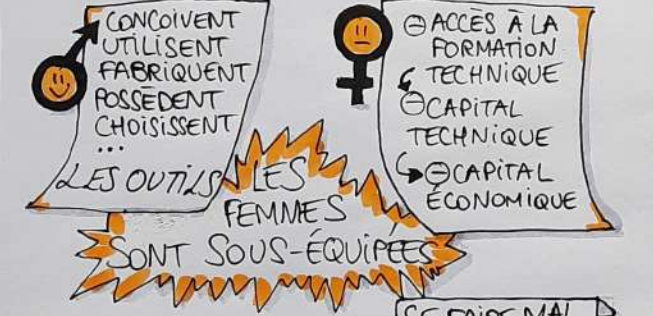 CONÇOIVENT
UTILISENT
FABRIQUENT
POSSÈDENT
CHOISISSENT
...
LES OUTILS
⊖ ACCÈS À LA
FORMATION
TECHNIQUE
⊖ CAPITAL
TECHNIQUE
⊖ CAPITAL
ÉCONOMIQUE
LES
FEMMES
SONT SOUS-ÉQUIPÉES
SE FAIRE MAL